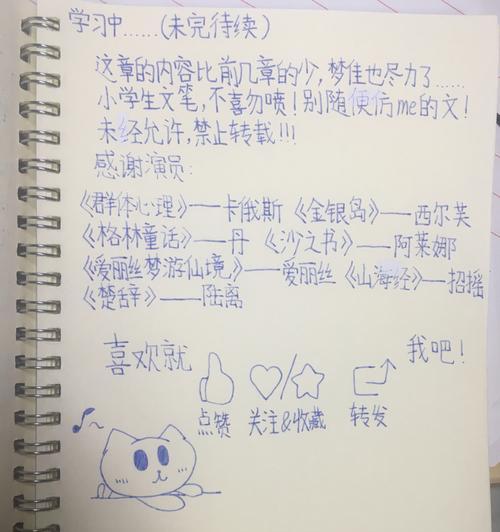 学习中……(未完待续)
这章的内容比前几章的少,梦佳也尽力了……
小学生文笔,不喜勿喷!别随便仿me的文!
未经允许,禁止转载!!!
感谢演员:
《群体心理》——卡俄斯《金银岛》——西尔芙
《格林童话》——丹《沙之书》——阿莱娜
《爱丽丝梦游仙境》——爱丽丝《山海经》——招摇
《楚辞》——陆离
喜欢就 我吧!
点赞 关注&收藏 转发